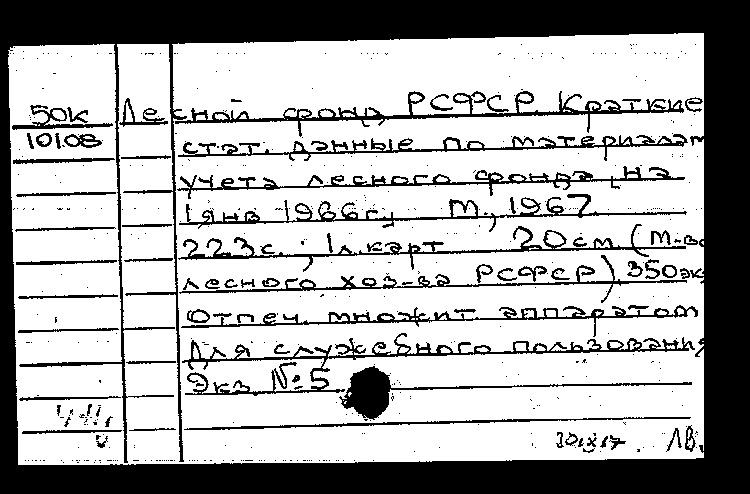 50к Лесной фонд РСФСР Краткие
10108 стат. данные по материалам
учета лесного фонда на
1 янв 1966г. М., 1967.
223с.; 1л.карт 20см. (М-во
лесного хоз-ва РСФСР). 350эк
Отпеч. множит аппаратом
Для служебного пользования
Экз. №5
ЛВ.